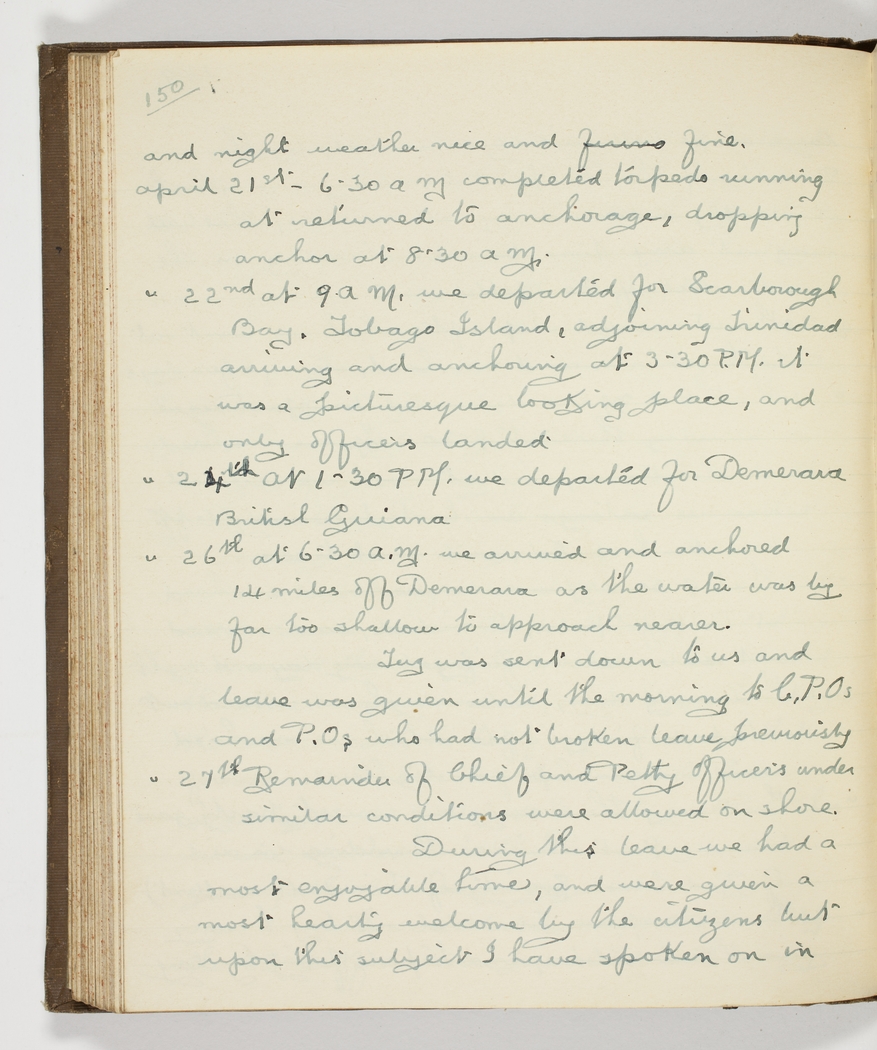 150
and night weather nice and fine.
april 21st - 6-30 a M completed torpedo running
at returned to anchorage, dropping
anchor at 8-30 a M.
" 22nd at 9 a M. we departed for Scarborough
Bay. Tobago Island, adjoining Trinidad
arriving and anchoring at 3-30 P.M. it
was a picturesque looking place, and
only officers landed
" 24th at 1-30 P M. we departed for Demerara
British Guiana
" 26th at 6-30 a.M. we arrived and anchored
14 miles off Demerara as the water was by
far too shallow to approach nearer.
Tug was sent down to us and
leave was given until the morning to C.P.Os
and P.Os who had not broken leave previously
" 27th Remainder of Chief and Petty Officers under
similar conditions were allowed on shore.
During this leave we had a
most enjoyable time, and were given a
most hearty welcome by the citizens but
upon this subject I have spoken on in